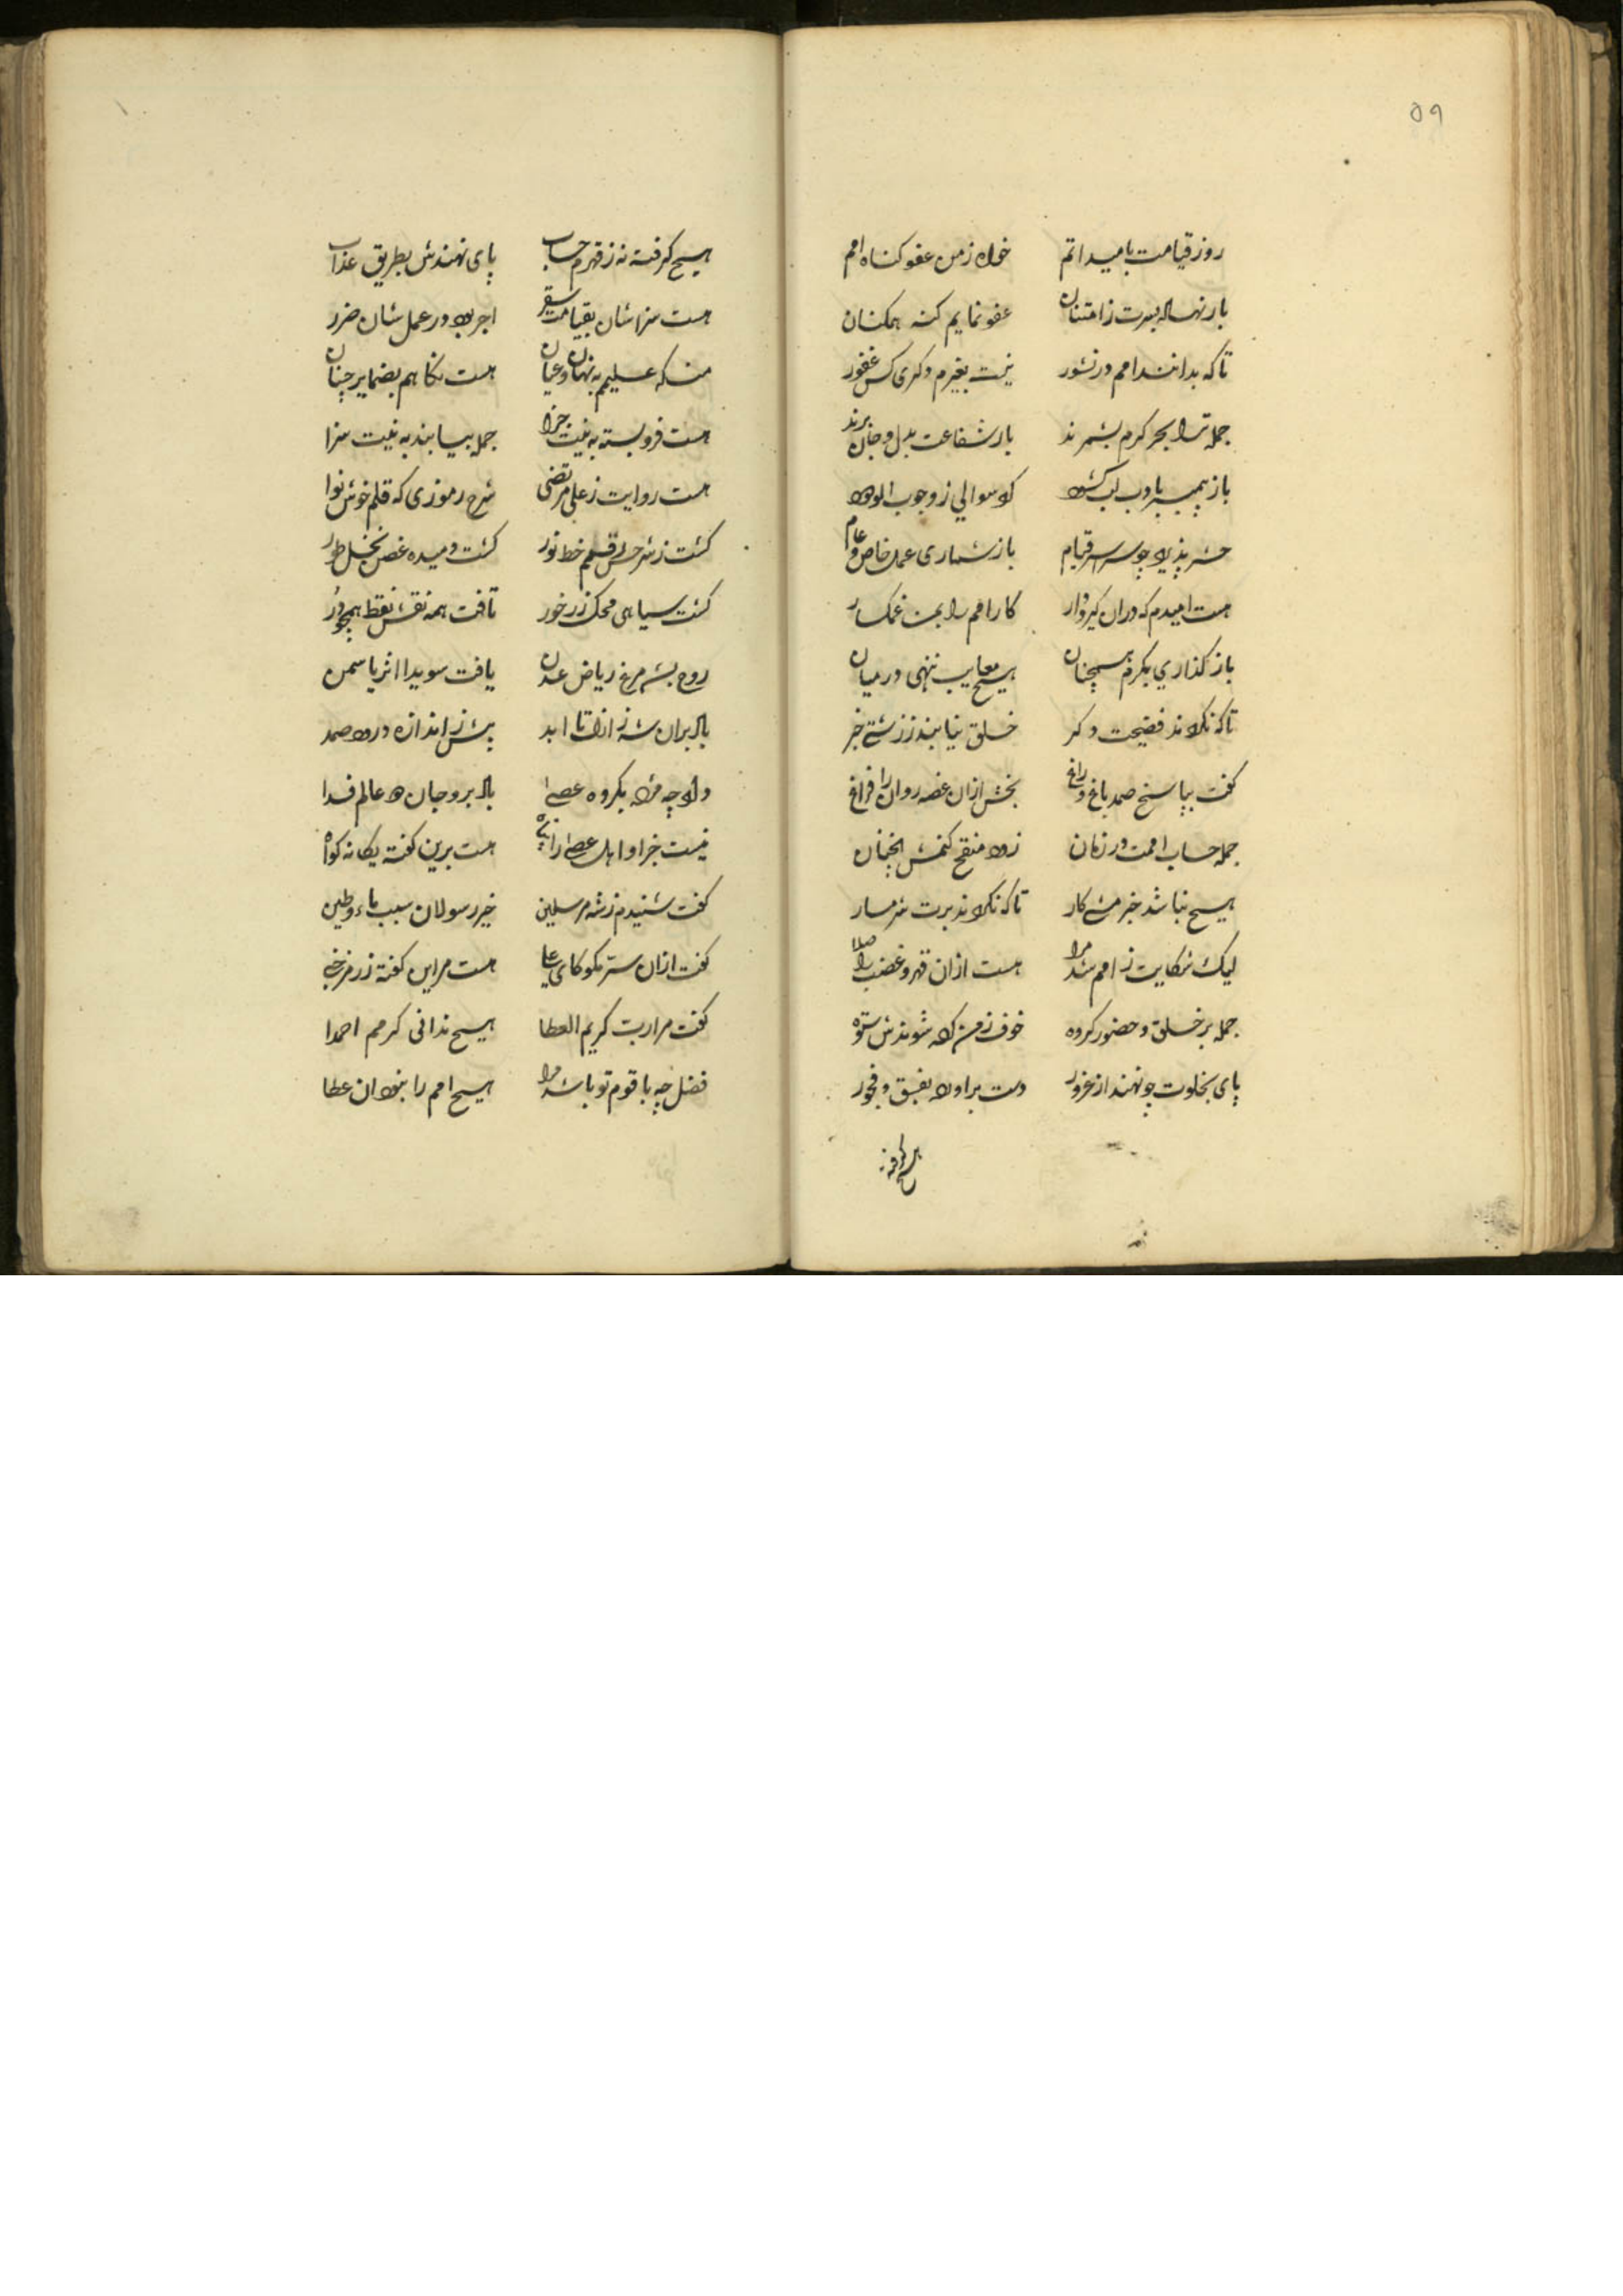 ۵۹
روز قیامت بامید اتم خواه ز من عفو گناه امم
بار نهد بسرت ز امتنان عفو نمایم گنه همکنان
تا که بدانند امم در نشور نیست بغیرم دکری کس غفور
جمله ترا بحر کرم بشمرند بار شفاعت بدل و جان برند
باز پیمبر بادب لب کشود کرد سوالی ز وجوب الوجود
حشر پذیرد چو سراسر قیام باز شماری عمل خاص و عام
هست امیدم که دران کیر و دار کار امم را بمن غمکسار
باز کذاری بکرم همچنان هیچ معایب ننهی در میان
تا که نکردند فضیحت دکر خلق نیابند ز زشتی خبر
کفت بپاسخ صمد باغ و راغ بخش ازان غصه روان را فراغ
جمله حساب امت در زمان زود منقح کنمش انچنان
هیچ نباشد خبر منهٔ کار تا که نکردند برت شرمسار
لیک شکایت ز امم شد مرا هست ازان قهر و غضب را صلا
جمله بر خلق و حضور کروه خوف ز من کرد شوندش ستوه
پای بخلوت چو نهند از غرور دست براورد بفسق و فجور
هیچ کرفته نه
هیچ کرفته نه ز قهرم حساب پای نهندش بطریق عذاب
هست سزاشان بقیامت سقر اجر بود در عمل شان ضرر
من که علیمم به نهان و عیان هست نکاهم بضمایر چنان
هست فرو بسته به نیت جزا جمله بیابند به نیت سزا
هست روایت ز علی مرتضی شرح رموزی که قلم خوش نوا
کشت ز شرحش قلمم خط نور کشت دمیده غصن نخل طور
کشت سیاهی محک زر خور تافت همه نقش نقط همچو در
روح بشه مرغ ریاض عدن یافت سویدا اثر یاسمن
باد بران شه ز ازل تا ابد بیش ز اندازه درود صمد
داد چه مژده بکروه عصا باد برو جان دو عالم فدا
نیست جز او اهل عصا را پناه هست برین کفته یکانه کواه
کفت شنیدم ز شه مرسلین خیر رسولان سبب ماء و طین
کفت ازان ستر مکو کای علی هست مر این کفته ز رمز خفی
کفت مرا رب کریم العطا هیچ ندانی کرمم احمدا
فضل چه با قوم تو باشد مرا هیچ امم را نبود ان عطا